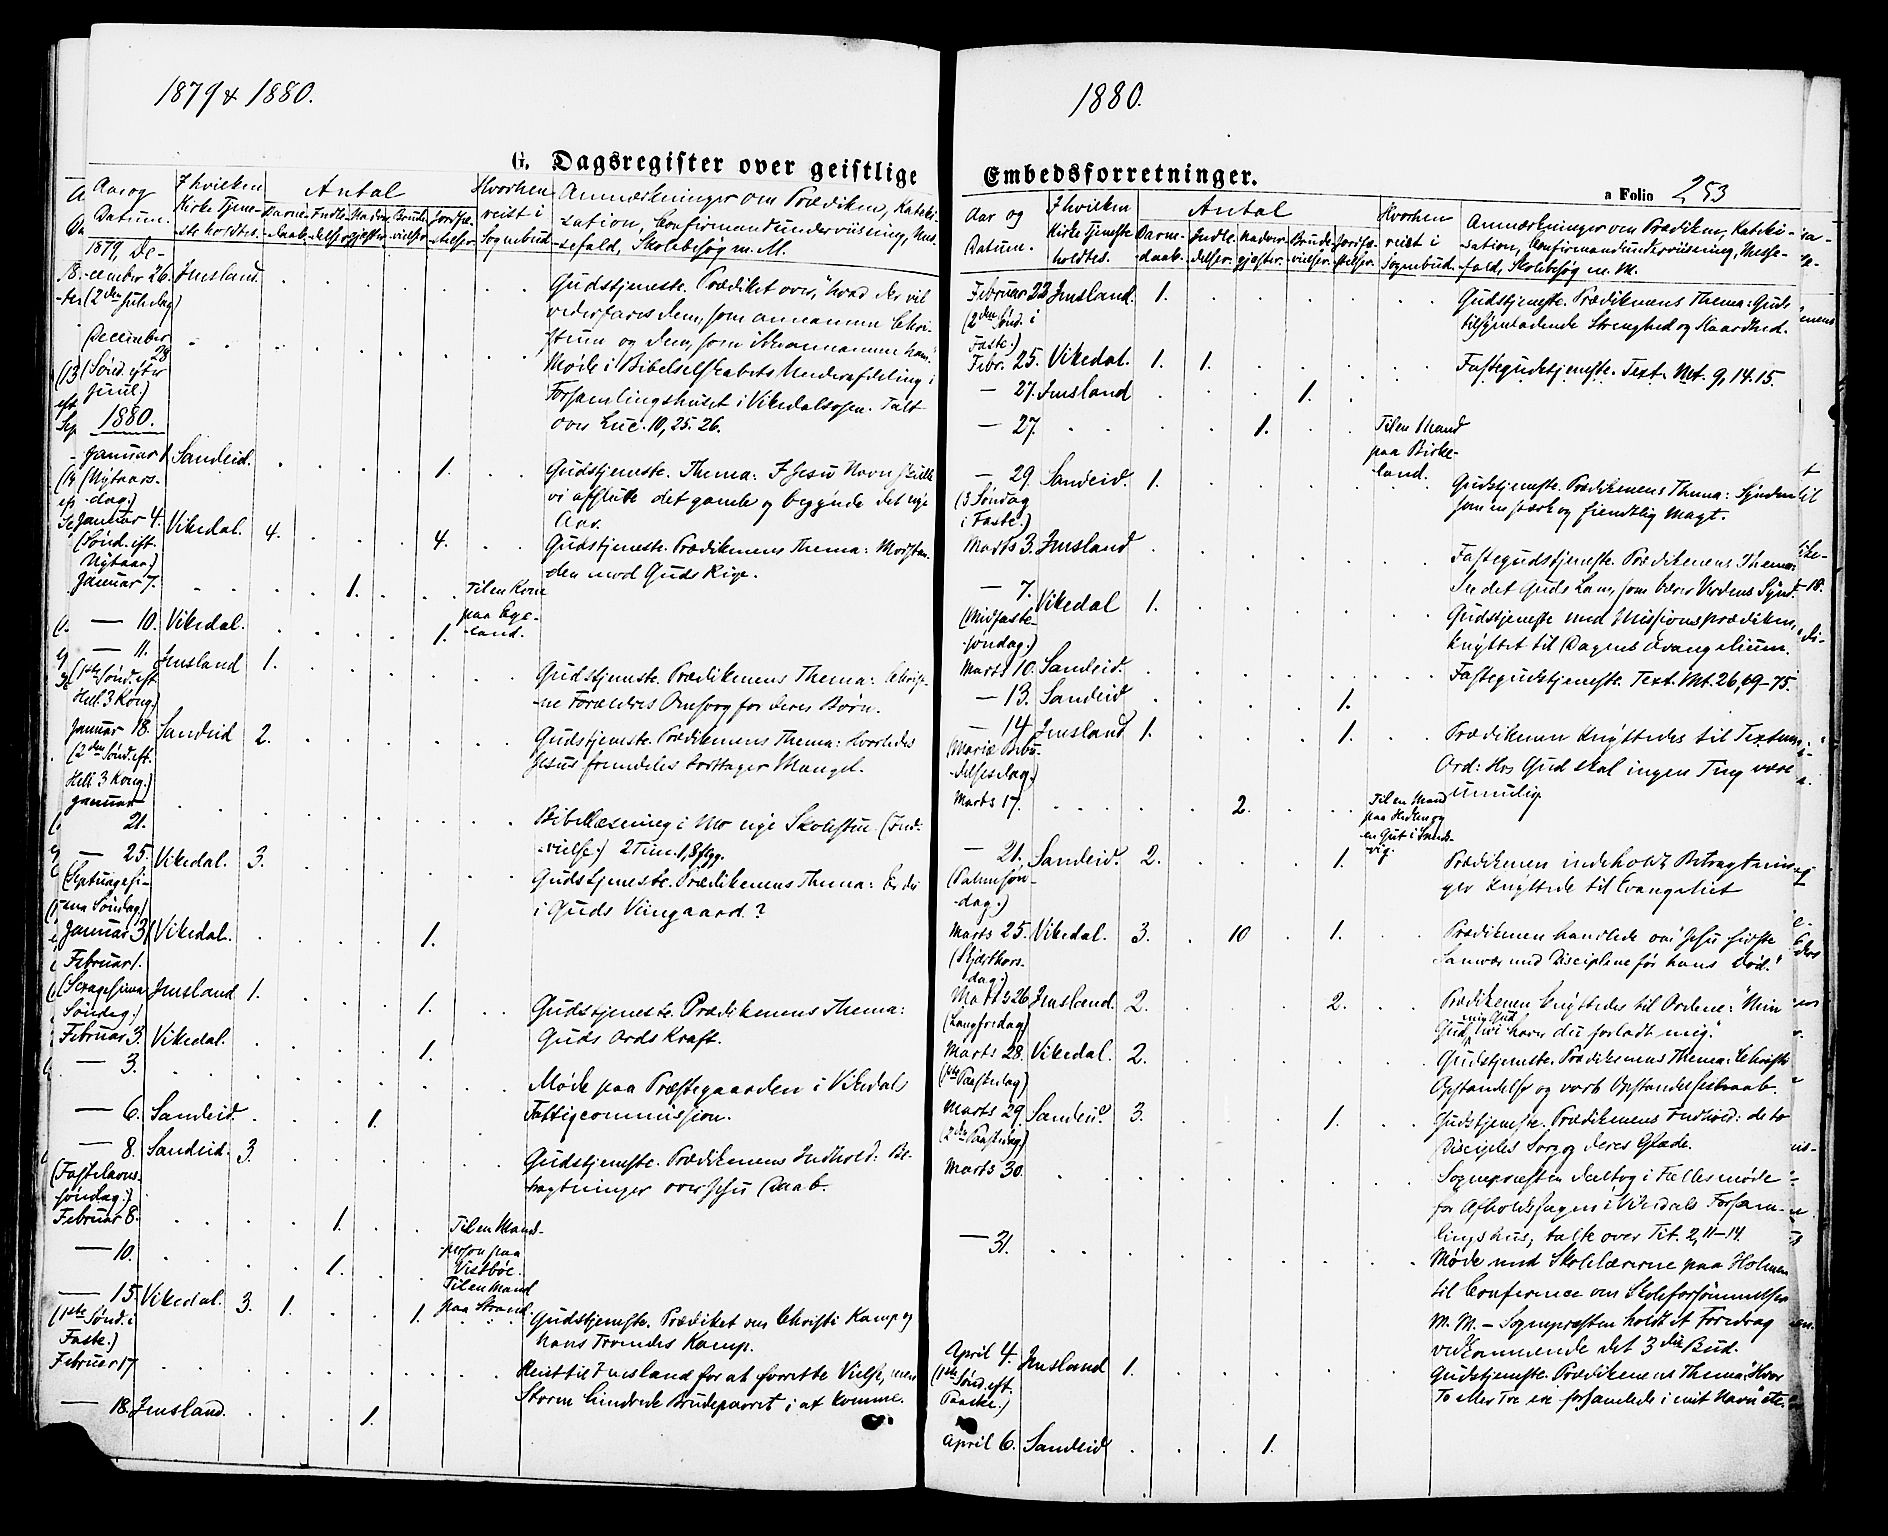 1879 & 1880.
G. Dagsregister over geistlige
Aar og Datum. I hvilken Kirke Tjeneste holdtes. Antal Barnedaab. Indledelser. Nadvergjæster. Brudevielser. Jordfæstelser. Hvorhen reist i Sognebud. Anmærkninger om Prædiken, Katekisation, Confirmandunderviisning, Messefald, Skolebesøg m. M.
1879, December 26. (2den Juledag) Imsland. Gudstjeneste. Prædiket over, "hvad der vil
vederfares dem, som annamme Christum
og dem, som ikke annamme ham."
December 28 (Sønd. efter Juul.) Møde i Bibelselskabets Underafdeling i
Forsamlingshuset i Vikedalsosen. Talt
over Luc. 10, 25. 26.
1880.
Januar 1 (Nytaarsdag.) Sandeid. 1. Gudstjeneste. Thema: I Jesu Navn skulle
vi afslutte det gamle og begynde det nye
Aar.
Januar 4. (Sønd. eft. Nytaar.) Vikedal. 4. 4. Gudstjeneste. Prædikenens Thema: Modstanden
mod Guds Rige.
Januar 7. 1. Til en Kone paa
— 10. Vikedal. 1.
— 11. (1ste Sønd. eft. Hell. 3 Kong.) Imsland 1. Gudstjeneste. Prædikenens Thema: Christne
Forældres Omsorg for deres Børn.
Januar 18. (2den Sønd. eft. Hell. 3 Kong.) Sandeid 2. Gudstjeneste. Prædikenens Thema: Hvorledes
Jesus fremdeles borttager Mangel.
Januar 21. Bibellæsning i Mo nye Skolestue. (Indvielse.)
2 Tim. 1, 8 flgg.
— 25. (Septuagesima Søndag) Vikedal. 3. Gudstjeneste. Prædikenens Thema: Er du
i Guds Viingaard?
Januar 31 Vikedal. 1.
Februar 1. (Sexagesima Søndag.) Imsland 1. 1. Gudstjeneste. Prædikenens Thema:
Guds Ords Kraft.
Februar 3. Vikedal. 1.
— 3. Møde paa Præstegaarden i Vikedals
Fattigcommission.
— 6. Sandeid. 1.
— 8. (Fastelavns søndag.) Sandeid. 3. Gudstjeneste. Prædikenens Indhold: Betragtninger
over Jesu Daab.
Februar 8. 1. Til en Mandsperson paa Vestbøe.
— 10. 1. Til en Mand paa Strand.
— 15. (1ste Sønd. i Faste.) Vikedal. 3. 1. 1. Gudstjeneste. Prædiket om Christi Kamp og
hans Troendes Kamp.
Februar 17. Reist til Imsland for at forrette Vielse, men
Storm hindrede Brudeparret i at komme.
— 18. Imsland. 1.
1880.
Embedsforretninger.
a Folio 253
Aar og Datum. I hvilken Kirke Tjeneste holdtes. Antal Barnedaab. Indledelser. Nadvergjæster. Brudevielser. Jordfæstelser. Hvorhen reist i Sognebud. Anmærkninger om Prædiken, Katekisation, Confirmandunderviisning, Messefald, Skolebesøg m. M.
Februar 22 (2den Sønd. i Faste.) Imsland. 1. Gudstjeneste. Prædikenens Thema: Guds
tilsyneladende Strenghed og Haardhed.
Febr. 25. Vikedal. 1. 1. Fastegudstjeneste. Text. Mt. 9, 14. 15.
— 27. Imsland 1.
— 27. 1. Til en Mand paa Birkeland.
— 29. (3 Søndag i Faste.) Sandeid. 1. Gudstjeneste. Prædikenens Thema: Synden
som en stærk og fiendtlig Magt.
Marts 3. Imsland Fastegudstjeneste. Prædikenens Thema:
Se det Guds Lam, som bærer Verdens Synd.
— 7. (Midfaste-søndag.) Vikedal 1. Gudstjeneste med Missionsprædiken,
knyttet til Dagens Evangelium.
Marts 10. Sandeid. Fastegudstjeneste. Text. Mt. 26, 69–75.
— 13. Sandeid 1.
— 14 (Mariæ Bebudelsesdag.) Imsland 1. 1. Prædikenen knyttedes til Textens
Ord: Hos Gud skal ingen Ting være
umulig.
Marts 17. 2. Til en Mand paa og en Gut i
— 21. (Palmesøndag.) Sandeid. 2. 1. Prædikenen indeholdt Betragtninger
knyttede til Evangeliet
Marts 25. (Skjærthorsdag.) Vikedal. 3. 10 1. Prædikenen handlede om "Jesu sidste
Samvær med Disciplene før hans Død."
Marts 26. (Langfredag) Imsland. 2. 2. Prædikenen knyttedes til Ordene: "Min
Gud, min Gud hvi haver du forladt mig".
Marts 28. (1ste Paaskedag) Vikedal. 2. Gudstjeneste. Prædikenens Thema: Christi
Opstandelse og vort Opstandelseshaab.
Marts 29. (2den Paaskedag) Sandeid. 3. 1. Gudstjeneste. Prædikenens Indhold: de to
Disciples Sorg og deres Glæde.
Marts 30. Sognepræsten deeltog i Fællesmøde
for Afholdssagen i Vikedals Forsamlingshus;
talte over Tit. 2, 11–14.
— 31. Møde med Skolelærerne paa Holmen
til Conference om Skoleforsømmelser
m. M. — Sognepræsten holdt et Foredrag
vedkommende det 3die Bud.
April 4. (1ste Sønd. eft. Paaske.) Imsland 1. Gudstjeneste. Prædikenens Thema: "Hvor
To eller Tre ere forsamlede i mit Navn" etc.
April 6. Sandeid 1.